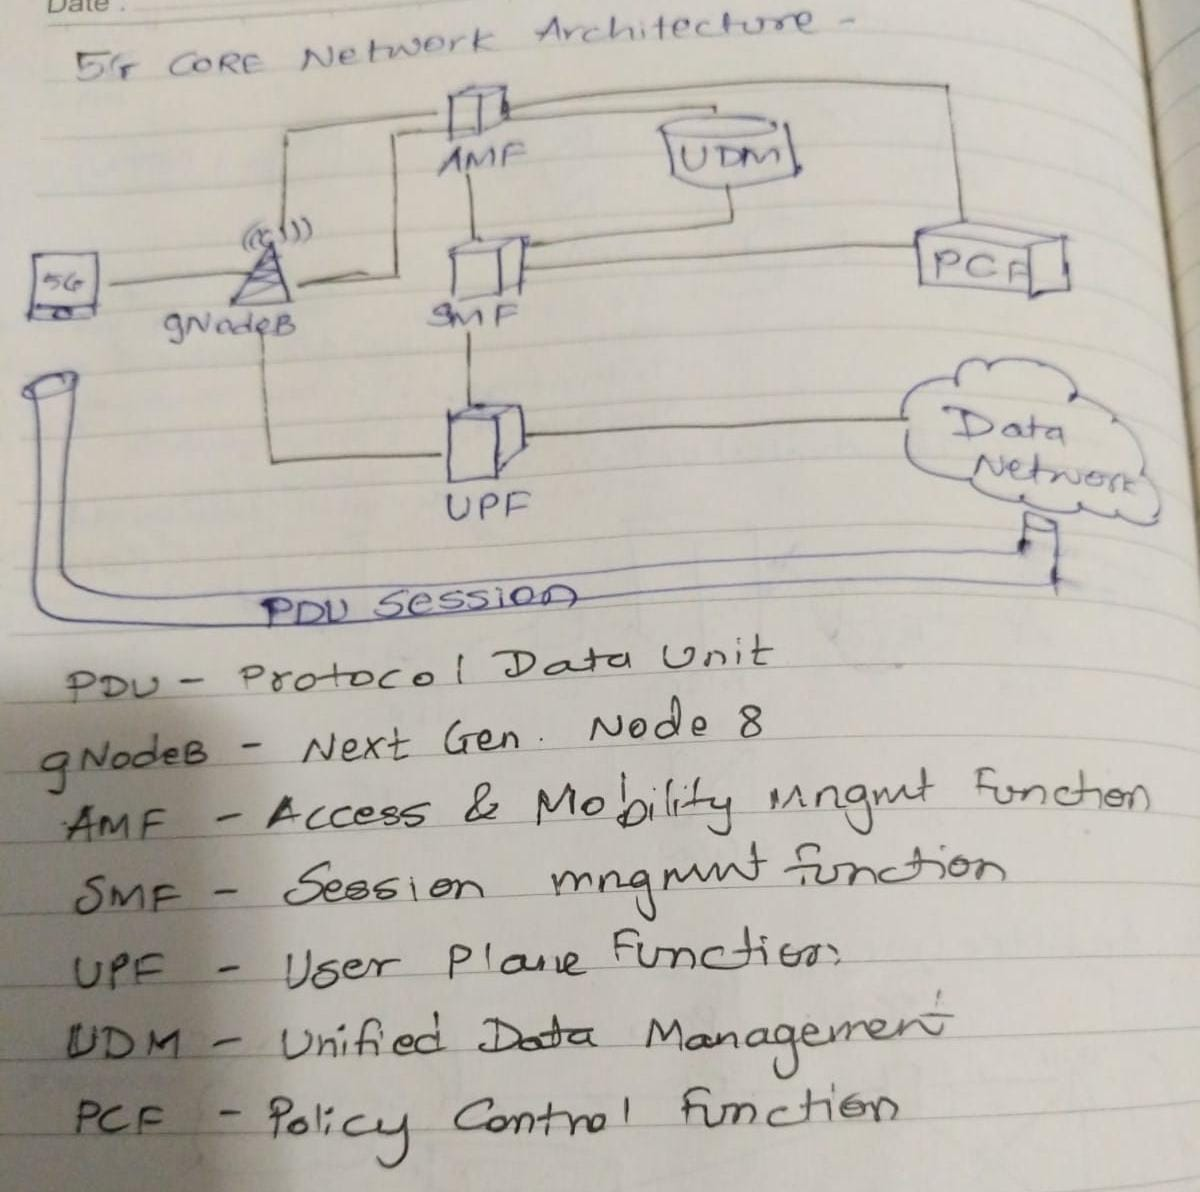 Date :
5G CORE Network Architecture -
AMF
UDM
5G
gNodeB
SMF
PCF
Data
Network
UPF
PDU Session
PDU - Protocol Data Unit
gNodeB - Next Gen. Node 8
AMF - Access & Mobility Mngmt Function
SMF - Session mngmnt function
UPF - User Plane Function
UDM - Unified Data Management
PCF - Policy Control Function